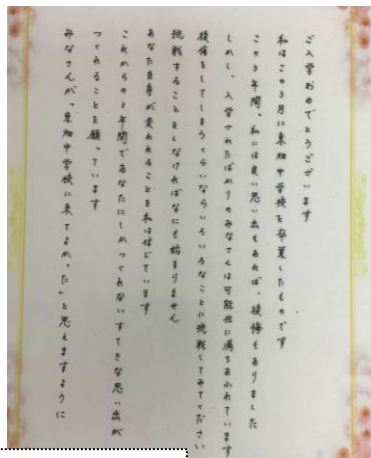 ご入学おめでとうございます
私はこの3月に東畑中学校を卒業したものです
この3年間、私には良い思い出もあれば、後悔もありました
しかし、入学されたばかりのみなさんは可能性に満ちあふれています
後悔をしてしまうくらいならいろいろなことに挑戦してみてください
挑戦することをしなければなにも始まりません
あなた自身が変われることを私は信じています
これからの3年間であなたにしかつくれないすてきな思い出が
つくれることを願っています
みなさんが「東畑中学校に来てよかった」と思えますように